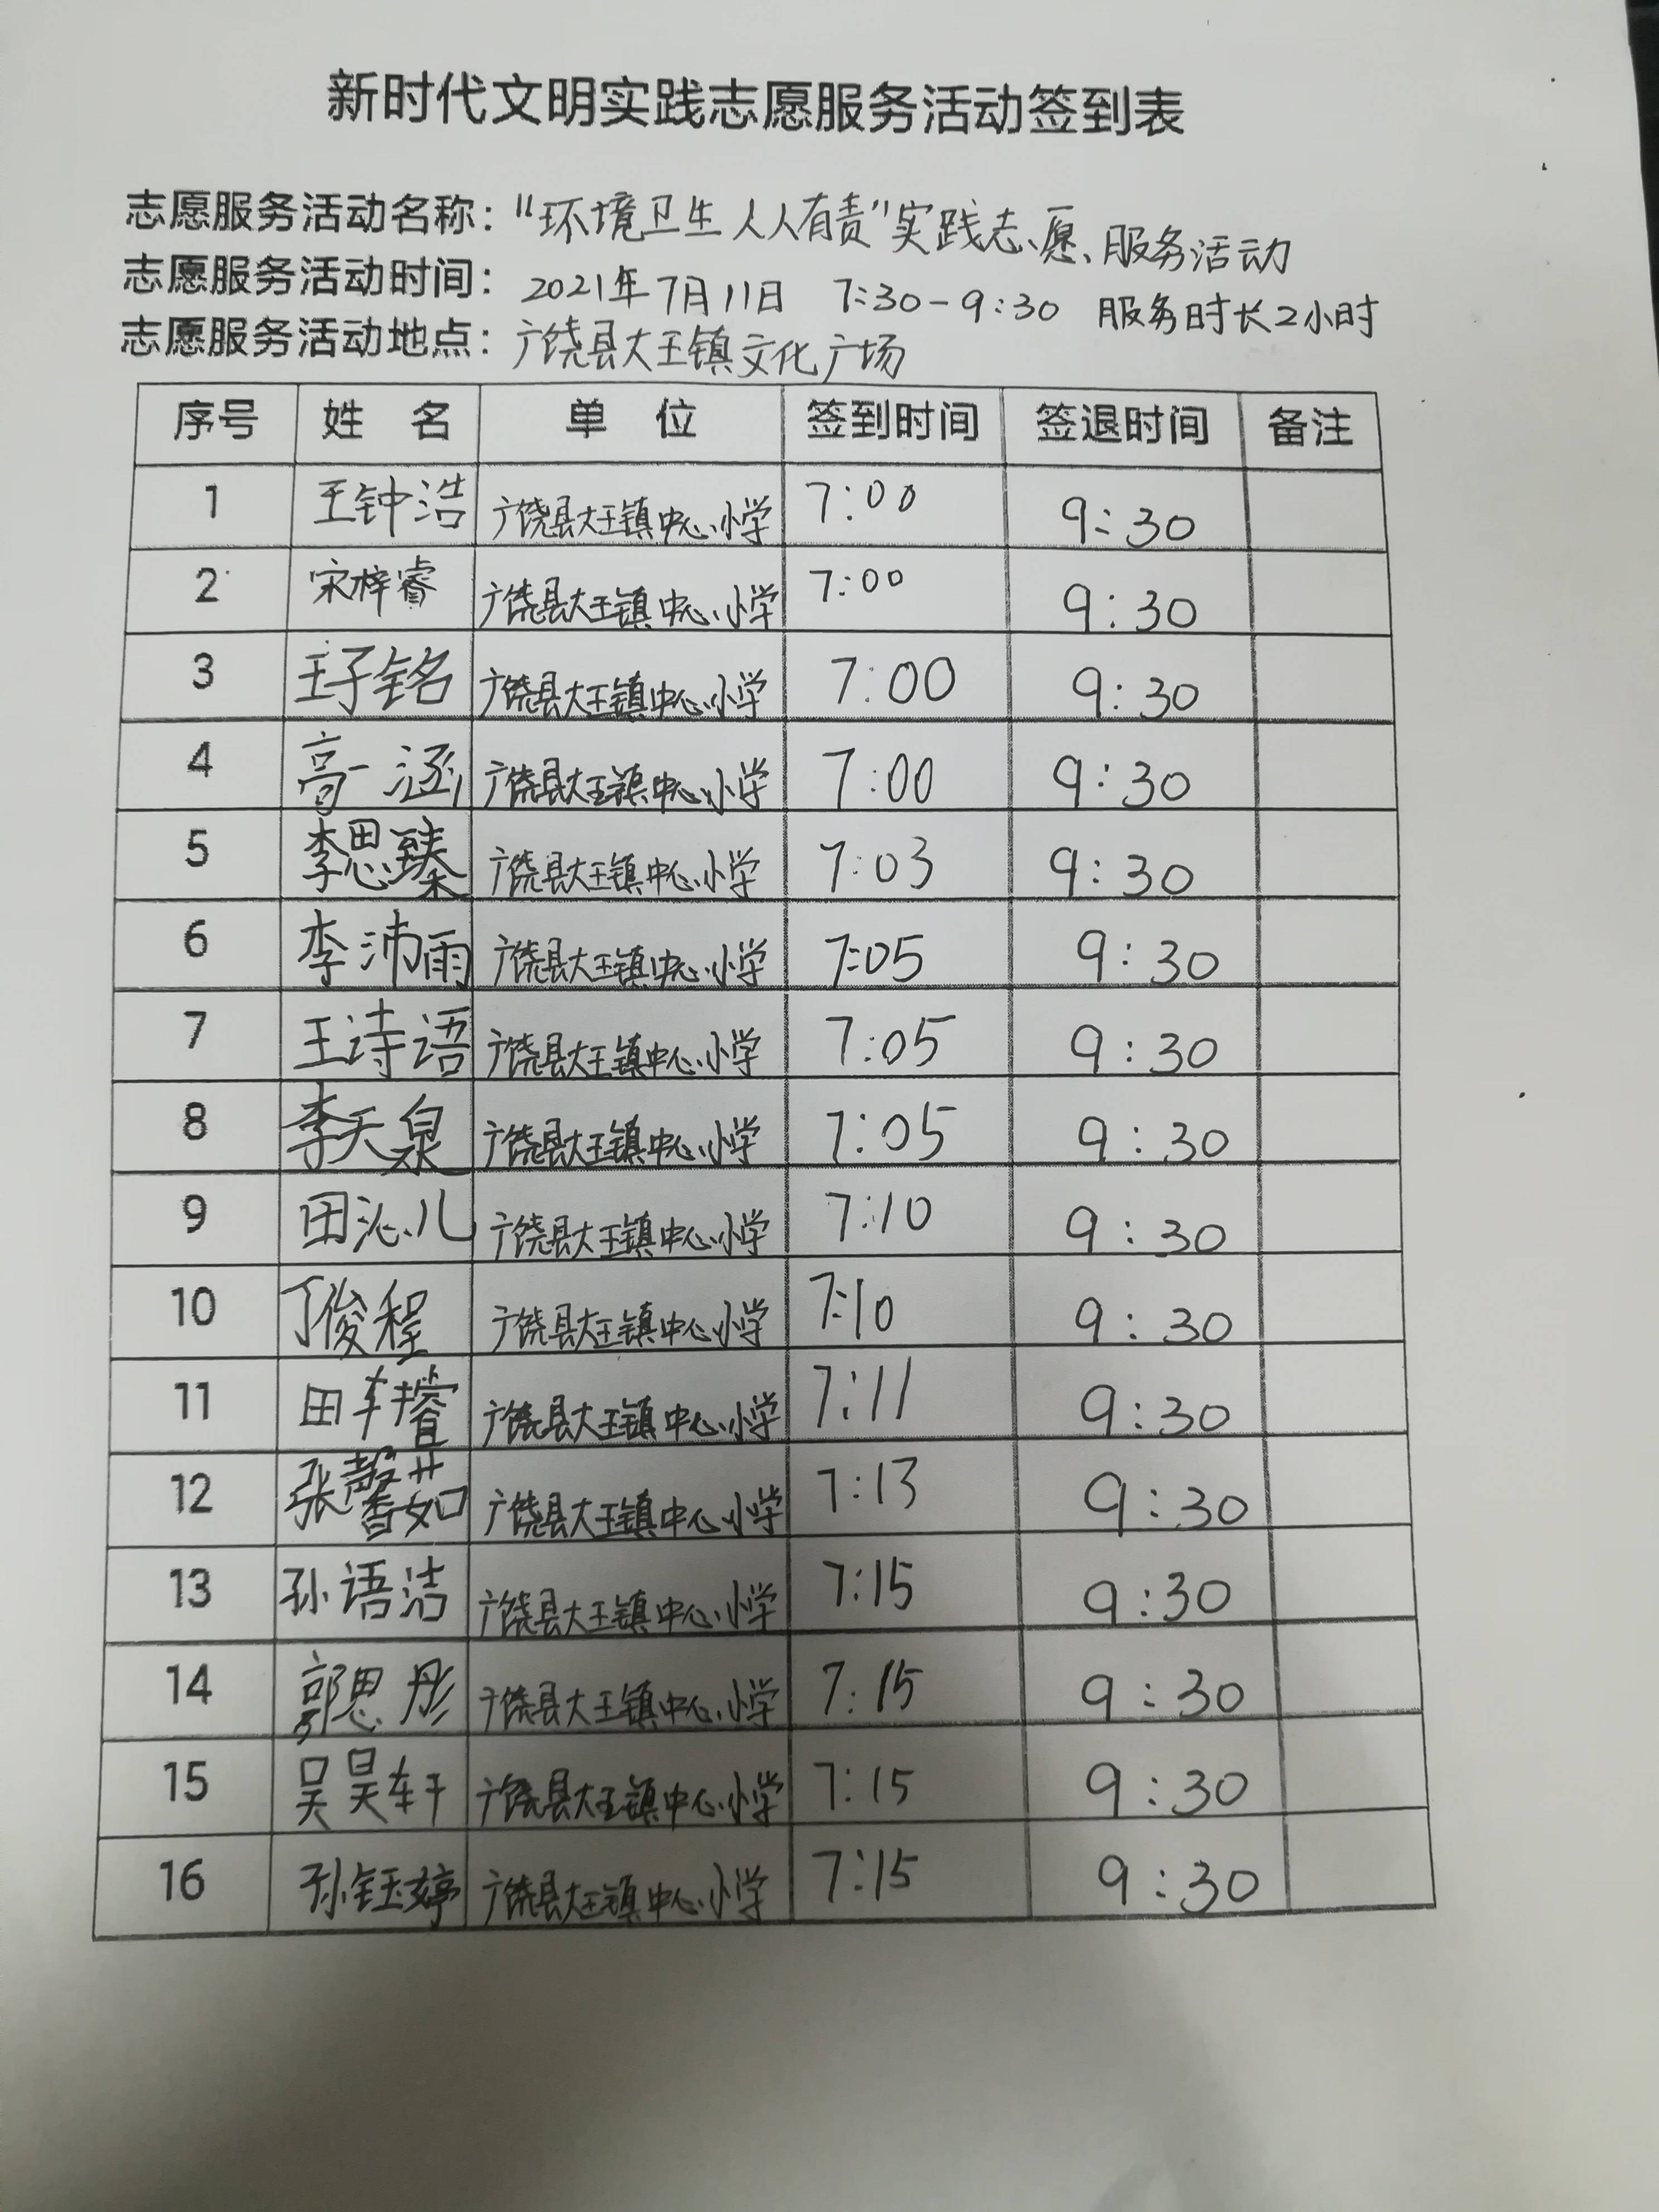 新时代文明实践志愿服务活动签到表
志愿服务活动名称："环境卫生人人有责"实践志愿服务活动
志愿服务活动时间：2021年7月11日 7:30-9:30 服务时长2小时
志愿服务活动地点：广饶县大王镇文化广场
序号 姓名 单位 签到时间 签退时间 备注
1 王钟浩 广饶县大王镇中心小学 7:00 9:30
2 宋梓睿 广饶县大王镇中心小学 7:00 9:30
3 王子铭 广饶县大王镇中心小学 7:00 9:30
4 高一涵 广饶县大王镇中心小学 7:00 9:30
5 李思臻 广饶县大王镇中心小学 7:03 9:30
6 李沛雨 广饶县大王镇中心小学 7:05 9:30
7 王诗语 广饶县大王镇中心小学 7:05 9:30
8 李天泉 广饶县大王镇中心小学 7:05 9:30
9 田沁儿 广饶县大王镇中心小学 7:10 9:30
10 丁俊程 广饶县大王镇中心小学 7:10 9:30
11 田 广饶县大王镇中心小学 7:11 9:30
12 张馨茹 广饶县大王镇中心小学 7:13 9:30
13 孙语洁 广饶县大王镇中心小学 7:15 9:30
14 郭思彤 广饶县大王镇中心小学 7:15 9:30
15 吴昊轩 广饶县大王镇中心小学 7:15 9:30
16 孙钰婷 广饶县大王镇中心小学 7:15 9:30